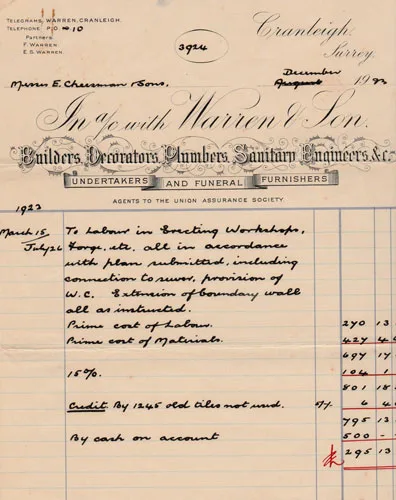 TELEGRAMS, WARREN, CRANLEIGH.
TELEPHONE P.O. 10
Partners
F. WARREN.
E. S. WARREN.
3924
Cranleigh,
Surrey.
Messrs E. Cheesman & Sons.
December
August 19
In a/c with Warren & Son.
Builders, Decorators, Plumbers, Sanitary Engineers, &c.
UNDERTAKERS AND FUNERAL FURNISHERS
AGENTS TO THE UNION ASSURANCE SOCIETY.
1923
March 15 To Labour in Erecting Workshops,
July 26 Forge, etc. all in accordance
with plan submitted, including
connection to sewer, provision of
W.C. Extension of boundary wall
all as instructed.
Prime cost of Labour. 270 13
Prime cost of Materials. 427 4
697 17
15%. 104 1
801 18
Credit. By 1245 old tiles not used. 6 4
795 13
By cash on account 500 -
295 13